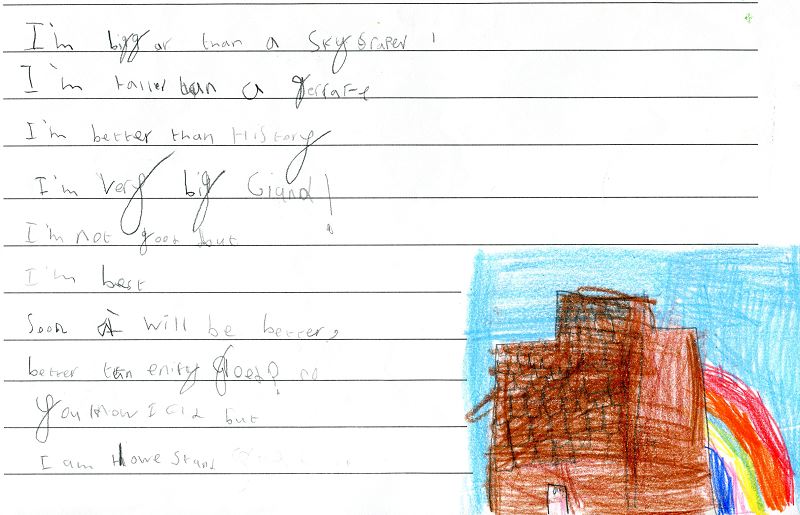 I'm biggar than a Sky Sraper!
I'm taller than a gerrafe
I'm better than History
I'm very big Giand!
I'm not good but
I'm best
Soon I will be better,
better than
You know I but
I am